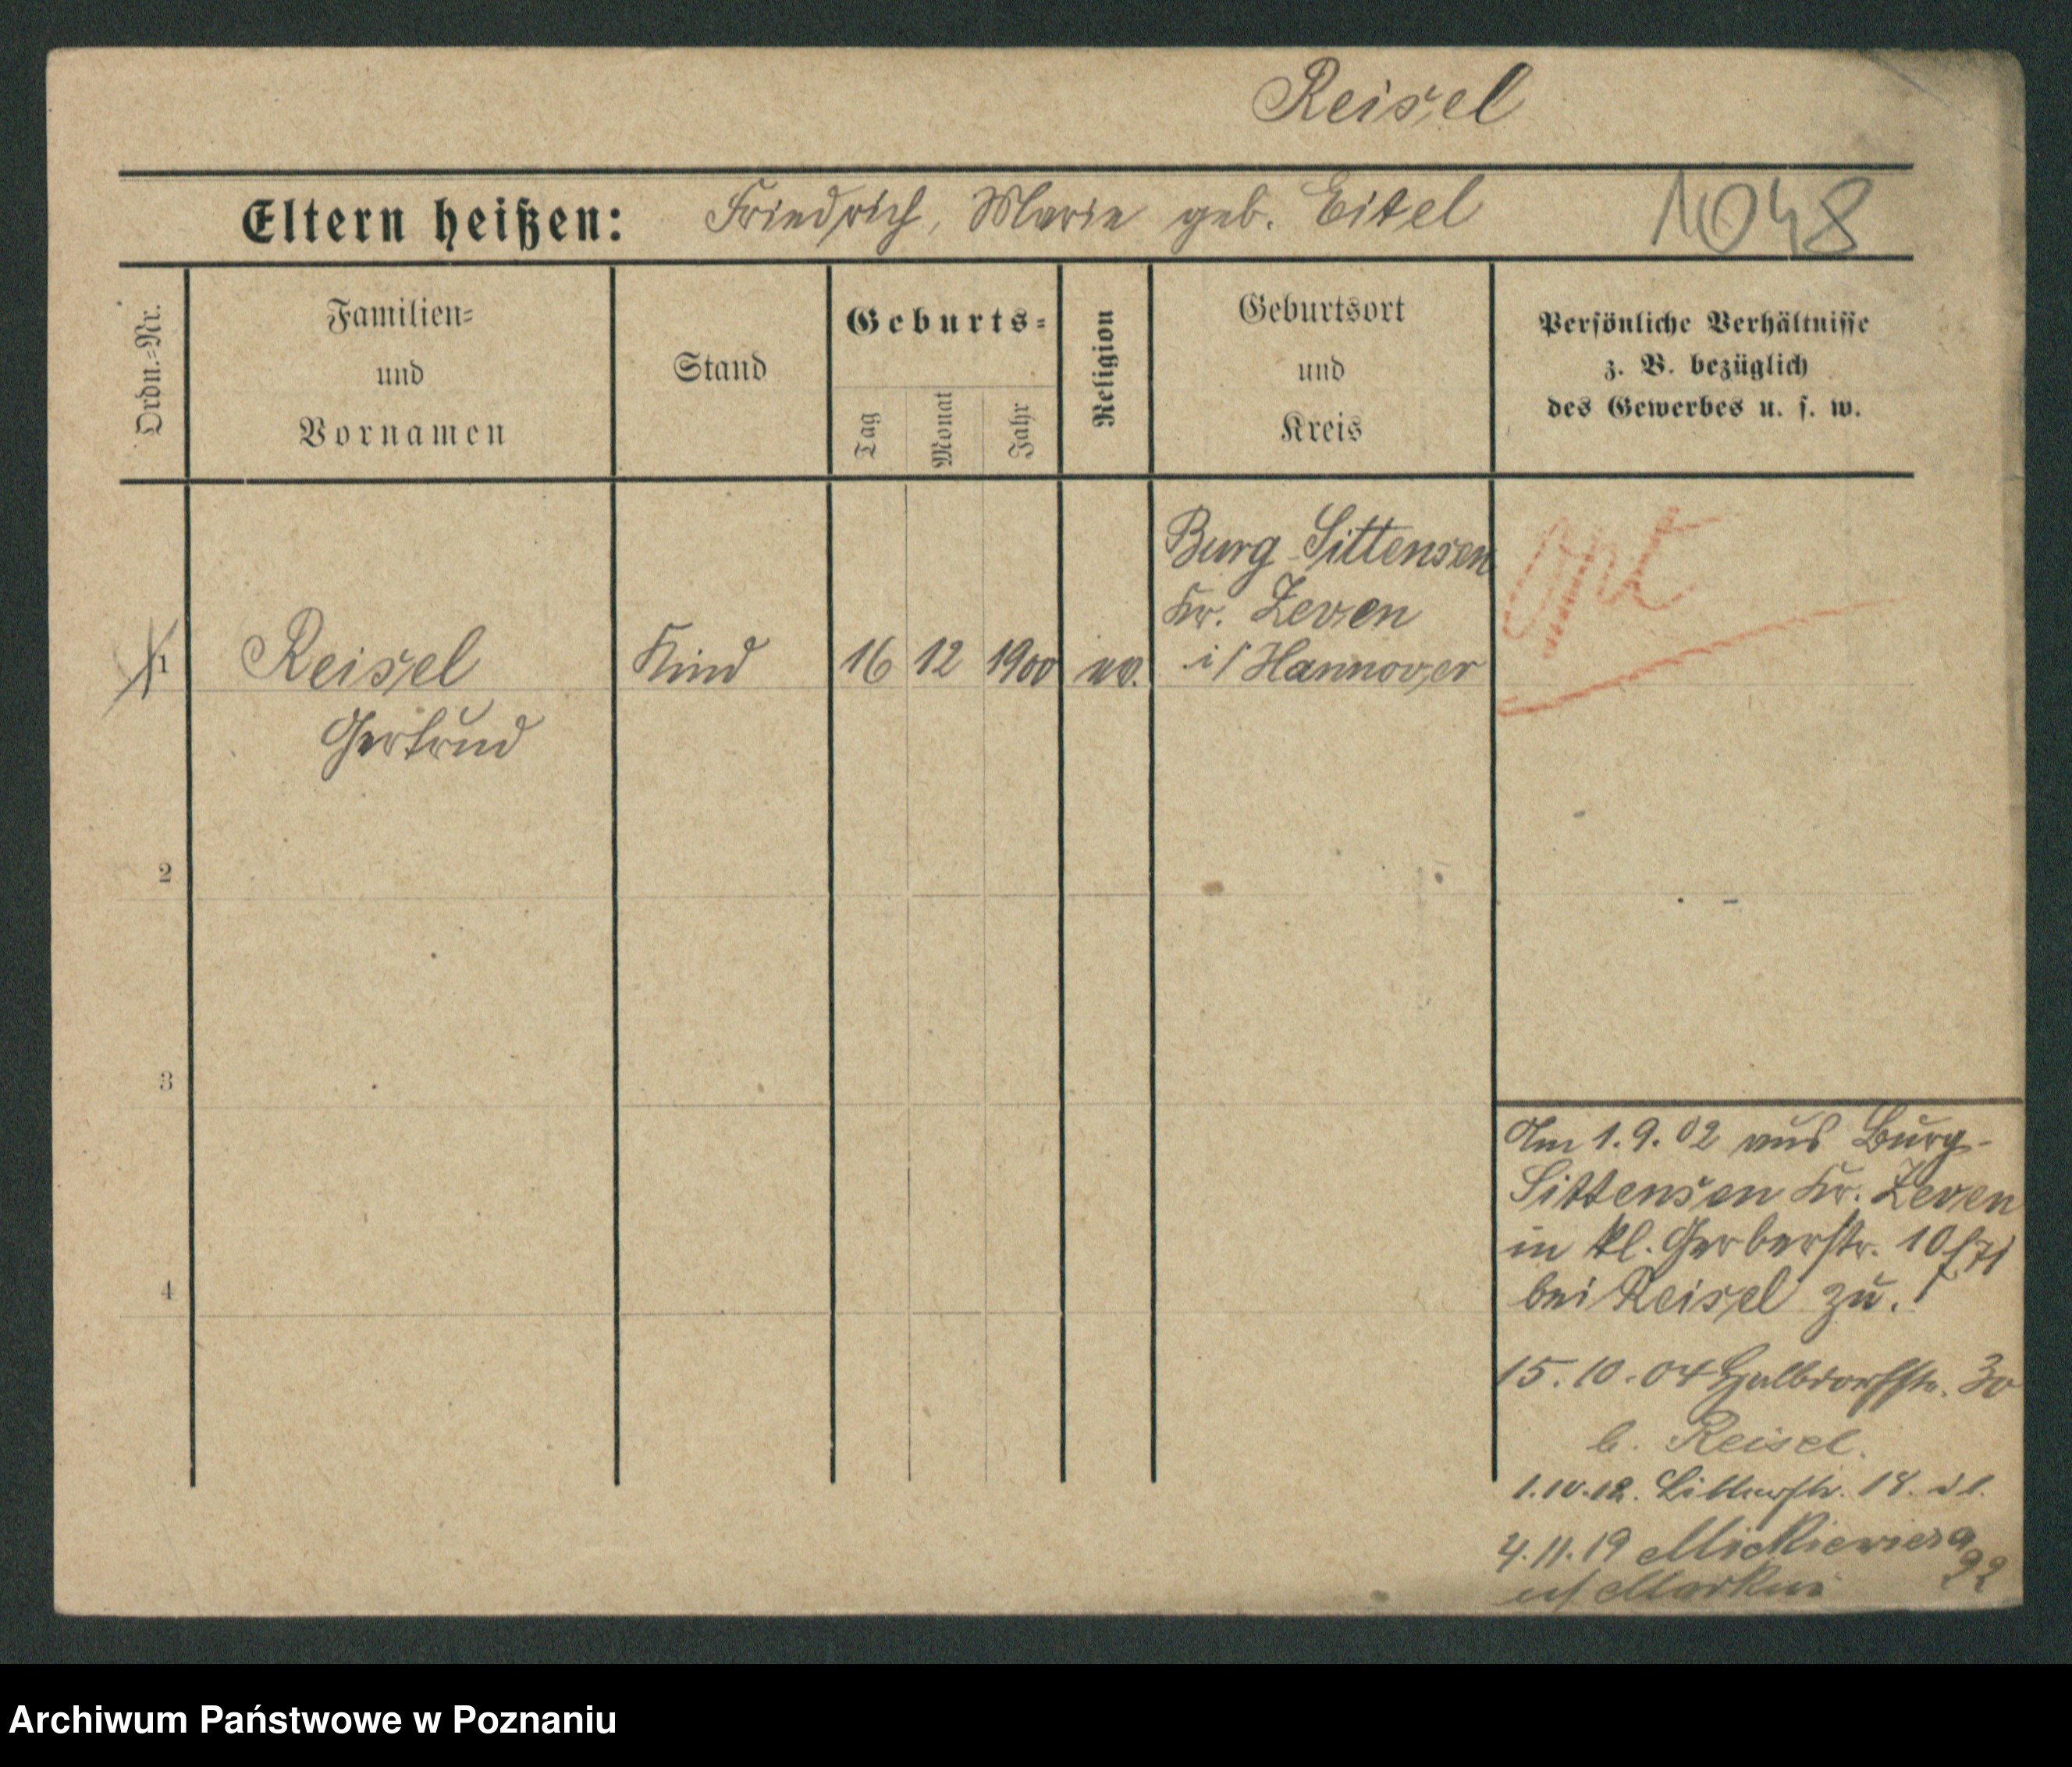 Reisel
Eltern heißen: Friedrich, Marie geb. Eitel 1048
Ordn.-Nr.
Familien-
und
Vornamen
Stand
Geburts-
Tag
Monat
Jahr
Religion
Geburtsort
und
Kreis
Persönliche Verhältnisse
z. B. bezüglich
des Gewerbes u. s. w.
Burg Sittensen
Kr. Zeven
i/Hannover
1 Reisel Kind 16 12 1900 ev.
Gertrud
Opt
2
3
4
Am 1.9.02 aus Burg-
Sittensen Kr. Zeven
in kl. Gerberstr. 10
bei Reisel zu.
15.10.04 Halbdorfstr. 30
b. Reisel.
1.10.12. 18.
4.11.19 Mickiewicza
22
Archiwum Państwowe w Poznaniu